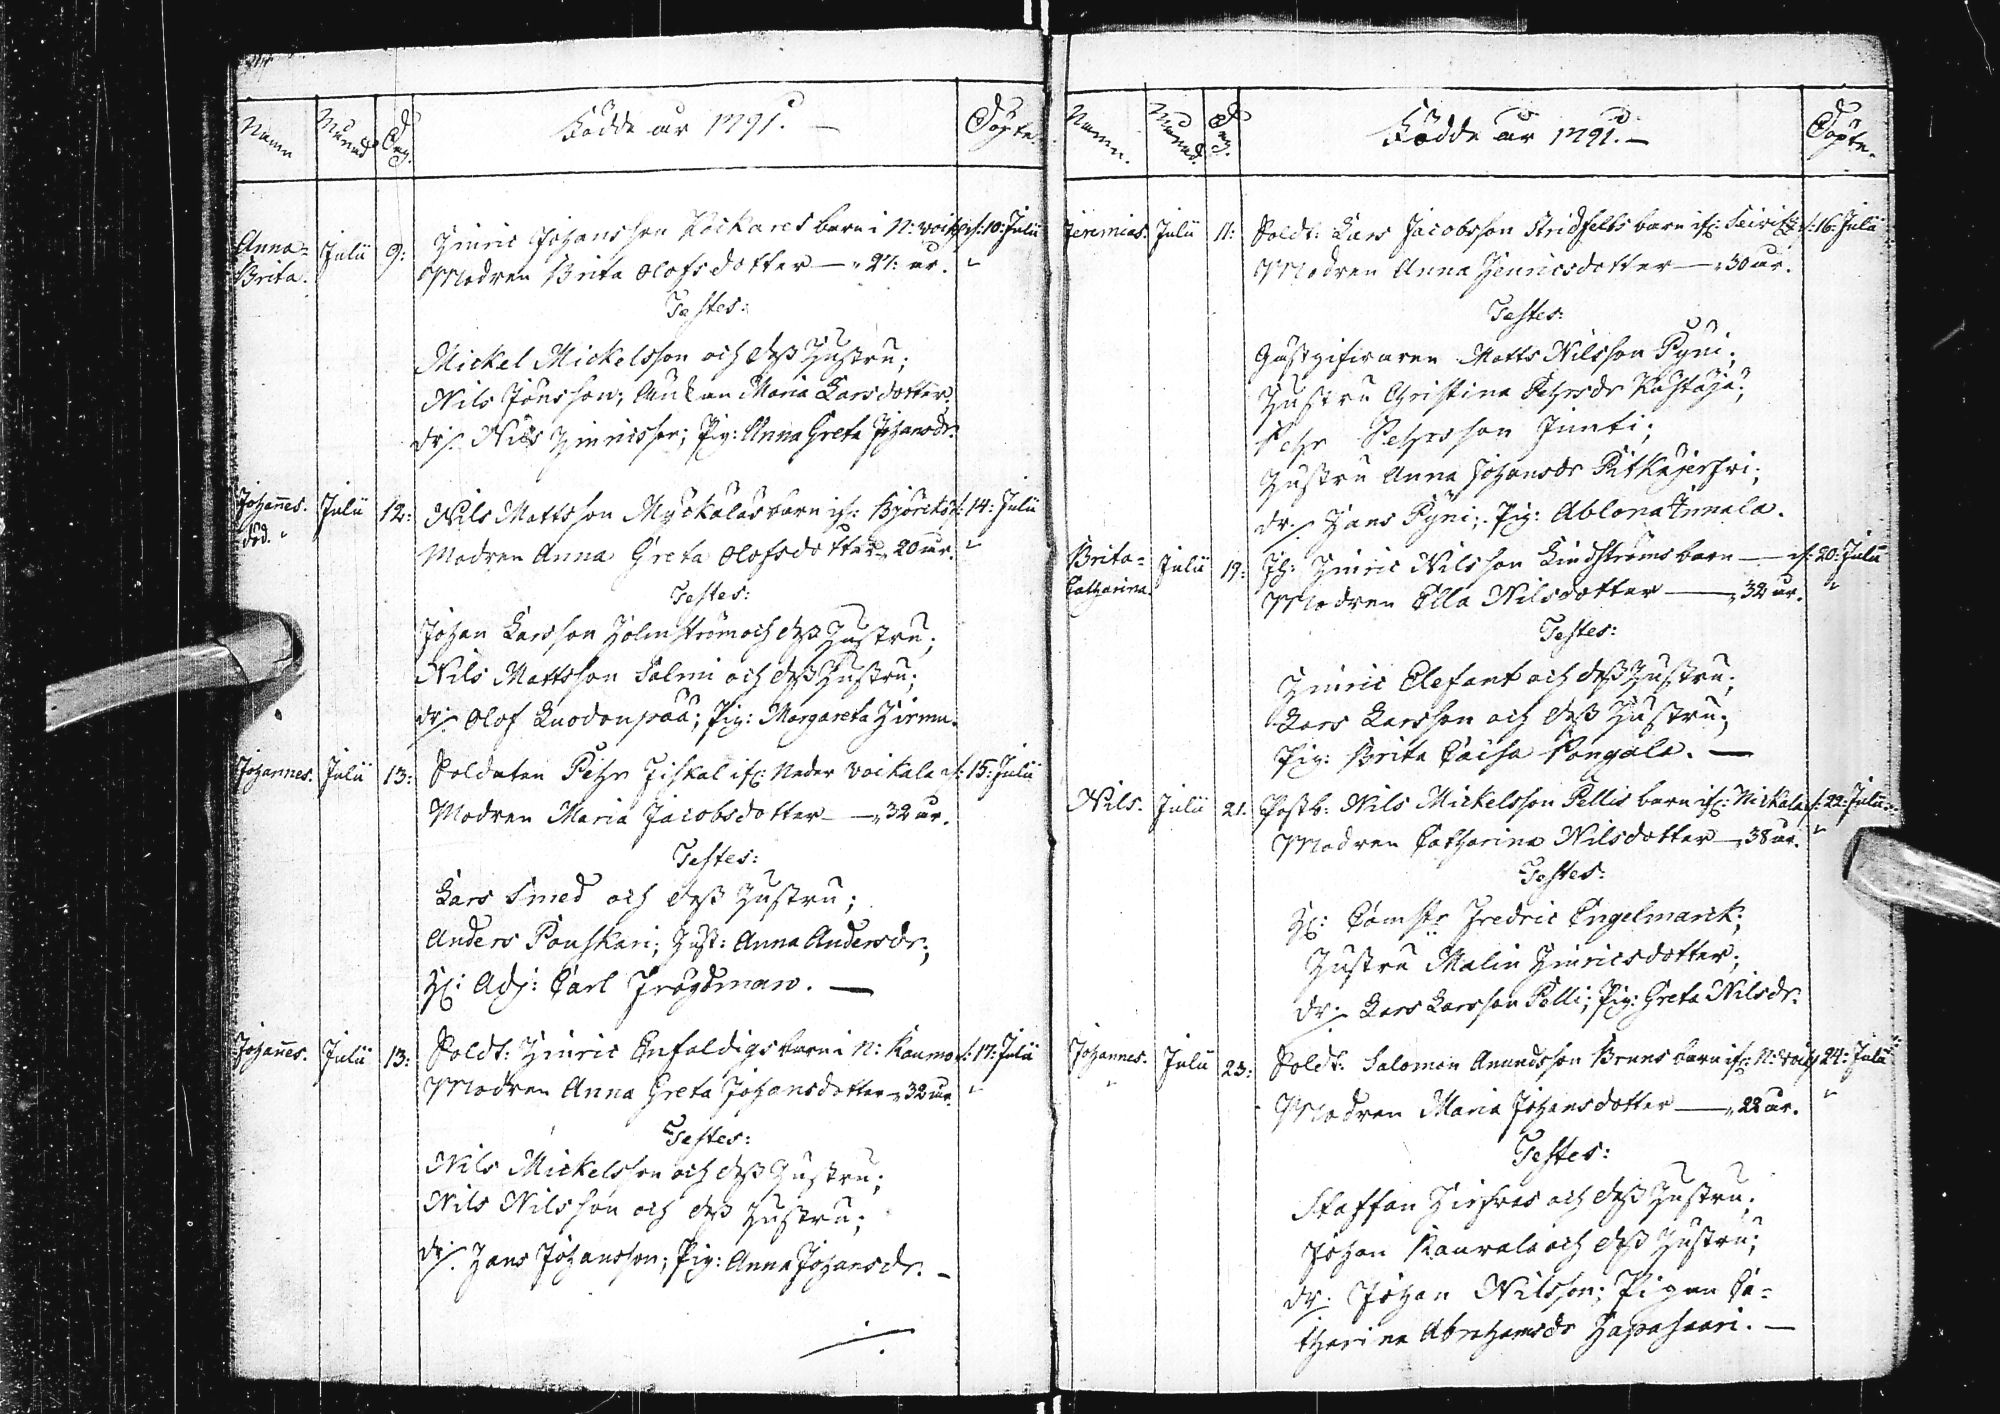 Namn Månad Dag. Födde år 1791. — Döpte.
Anna= Julii 9: Hinric Johansson Kockares barn i N: voik: d: 10: Julii
Brita. Modren Brita Olofsdotter — „ 27: år. „
Testes:
Mickel Mickelsson och dess Hustru;
Nils Jönsson; Änkan Maria Larsdotter.
dr: Nils Hinricsson; Pig: Anna Greta Johansdr.
Johannes. Julii 12: Nils Mattsson Myckäläs barn if: Björckö d: 14: Julii
död. „ Modren Anna Greta Olofsdotter „ 20 år. „
Testes:
Johan Larsson Holmström och dess Hustru;
Nils Mattsson Salmi och dess Hustru;
dr: Olof Luodonpää; Pig: Margareta Hirmu.
Johannes. Julii 13: Soldaten Pehr Fiskal if: Neder Voikala d: 15: Julii
Modren Maria Jacobsdotter — „ 32 år.
Testes:
Lars Smed och dess Hustru;
Anders Pouskari; Hust: Anna Andersdr;
H: Adj: Carl Frögdman. —
Johannes. Julii 13: Soldt: Hinric Enfaldigs barn i N: Kaumo d: 17: Julii
Modren Anna Greta Johansdotter „ 32 år. „
Testes:
Nils Mickelsson och dess Hustru;
Nils Nilsson och dess Hustru;
dr: Hans Johansson; Pig: Anna Johansdr. —
Namn. Månad. Dag. Födde år 1791. — Döpte.
Jeremias. Julii 11: Soldt: Lars Jacobsson Stridfelts barn if: d: 16: Julii
Modren Anna Henricsdotter — „ 30 år.
Testes:
Gästgifvaren Matts Nilsson Pyni;
Hustru Christina Pehrsdr Kustaja;
Pehr Pehrsson Junti;
Hustru Anna Johansdr Pitkäjerfvi;
dr: Hans Pyni; Pig: Ablona Innala.
Brita= Julii 19: Hinric Nilsson Lindströms barn — d: 20: Julii
Catharina. Modren Ella Nilsdotter — „ 32 år. „
Testes:
Hinric Elefant och dess Hustru;
Lars Larsson och dess Hustru;
Pig: Brita Caisa Pongala. —
Nils. Julii 21. Postb: Nils Mickelsson Pellis barn if: Nickala d: 22: Julii
Modren Catharina Nilsdotter — „ 38 år. „
Testes:
H: Comstr Fredric Engelmarck;
Hustru Malin Hinricsdotter;
dr: Lars Larsson Pelli; Pig: Greta Nilsdr.
Johannes. Julii 23: Soldt: Salomon Anundsson Bruns barn if: N: Voik d: 24: Julii
Modren Maria Johansdotter — „ 22 år. „
Testes:
Staffan och dess Hustru;
Johan Kauvala och dess Hustru;
dr: Johan Nilsson; Pigan Ca=
tharina Abrahamsdr Hapasaari. —